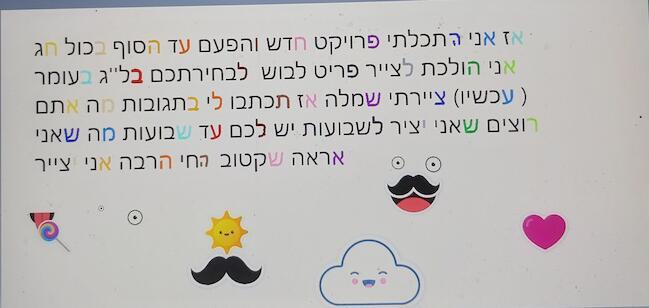 אז אני התכלתי פרויקט חדש והפעם עד הסוף בכול חג
אני הולכת לצייר פריט לבוש לבחירתכם בל''ג בעומר
( עכשיו) ציירתי שמלה אז תכתבו לי בתגובות מה אתם
רוצים שאני יציר לשבועות יש לכם עד שבועות מה שאני
אראה שקטוב החי הרבה אני יצייר